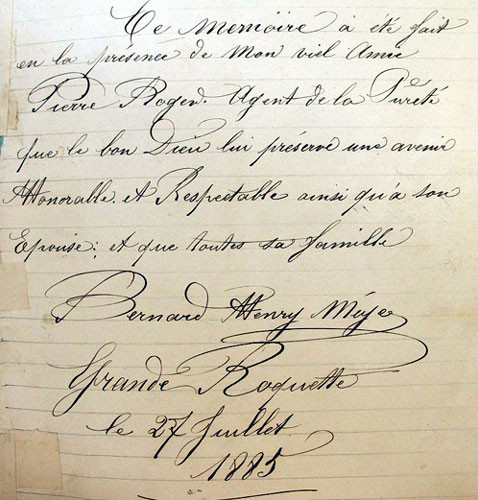 Ce Memoire à été fait
en la présence de Mon viel Amie
Pierre Roger. Agent de la Sûreté
que le bon Dieu lui préserve une avenir
Honorable. et Respectable ainsi qu'a son
Epouse; et que toutes sa famille
Bernard Henry
Grande Roquette
le 27 Juillet
1885